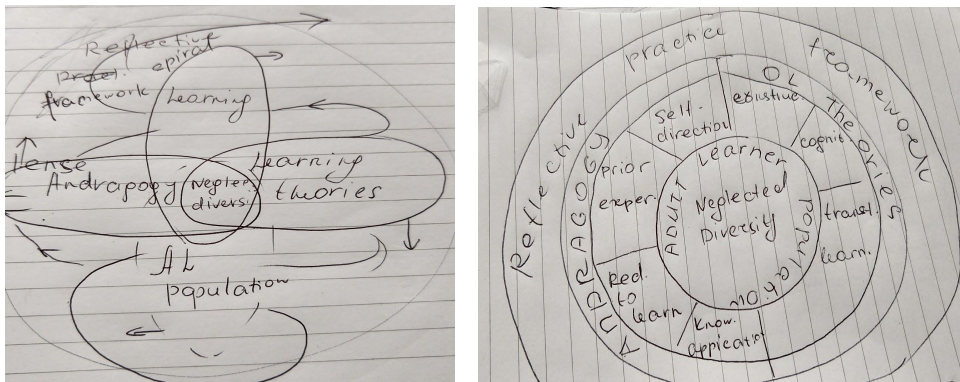 Reflective
Pract. epiral
framework
Learning
Lense
Andragogy
Neglec
diversi.
Learning
theories
AL
population
Reflective practice framework
ANDRAGOGY
OL Theories
Self-
direction
existive.
cognit.
transf.
learn.
know.
application
Red.
to
learn
prior
exper.
ADULT Learner population
Neglected
Diversity